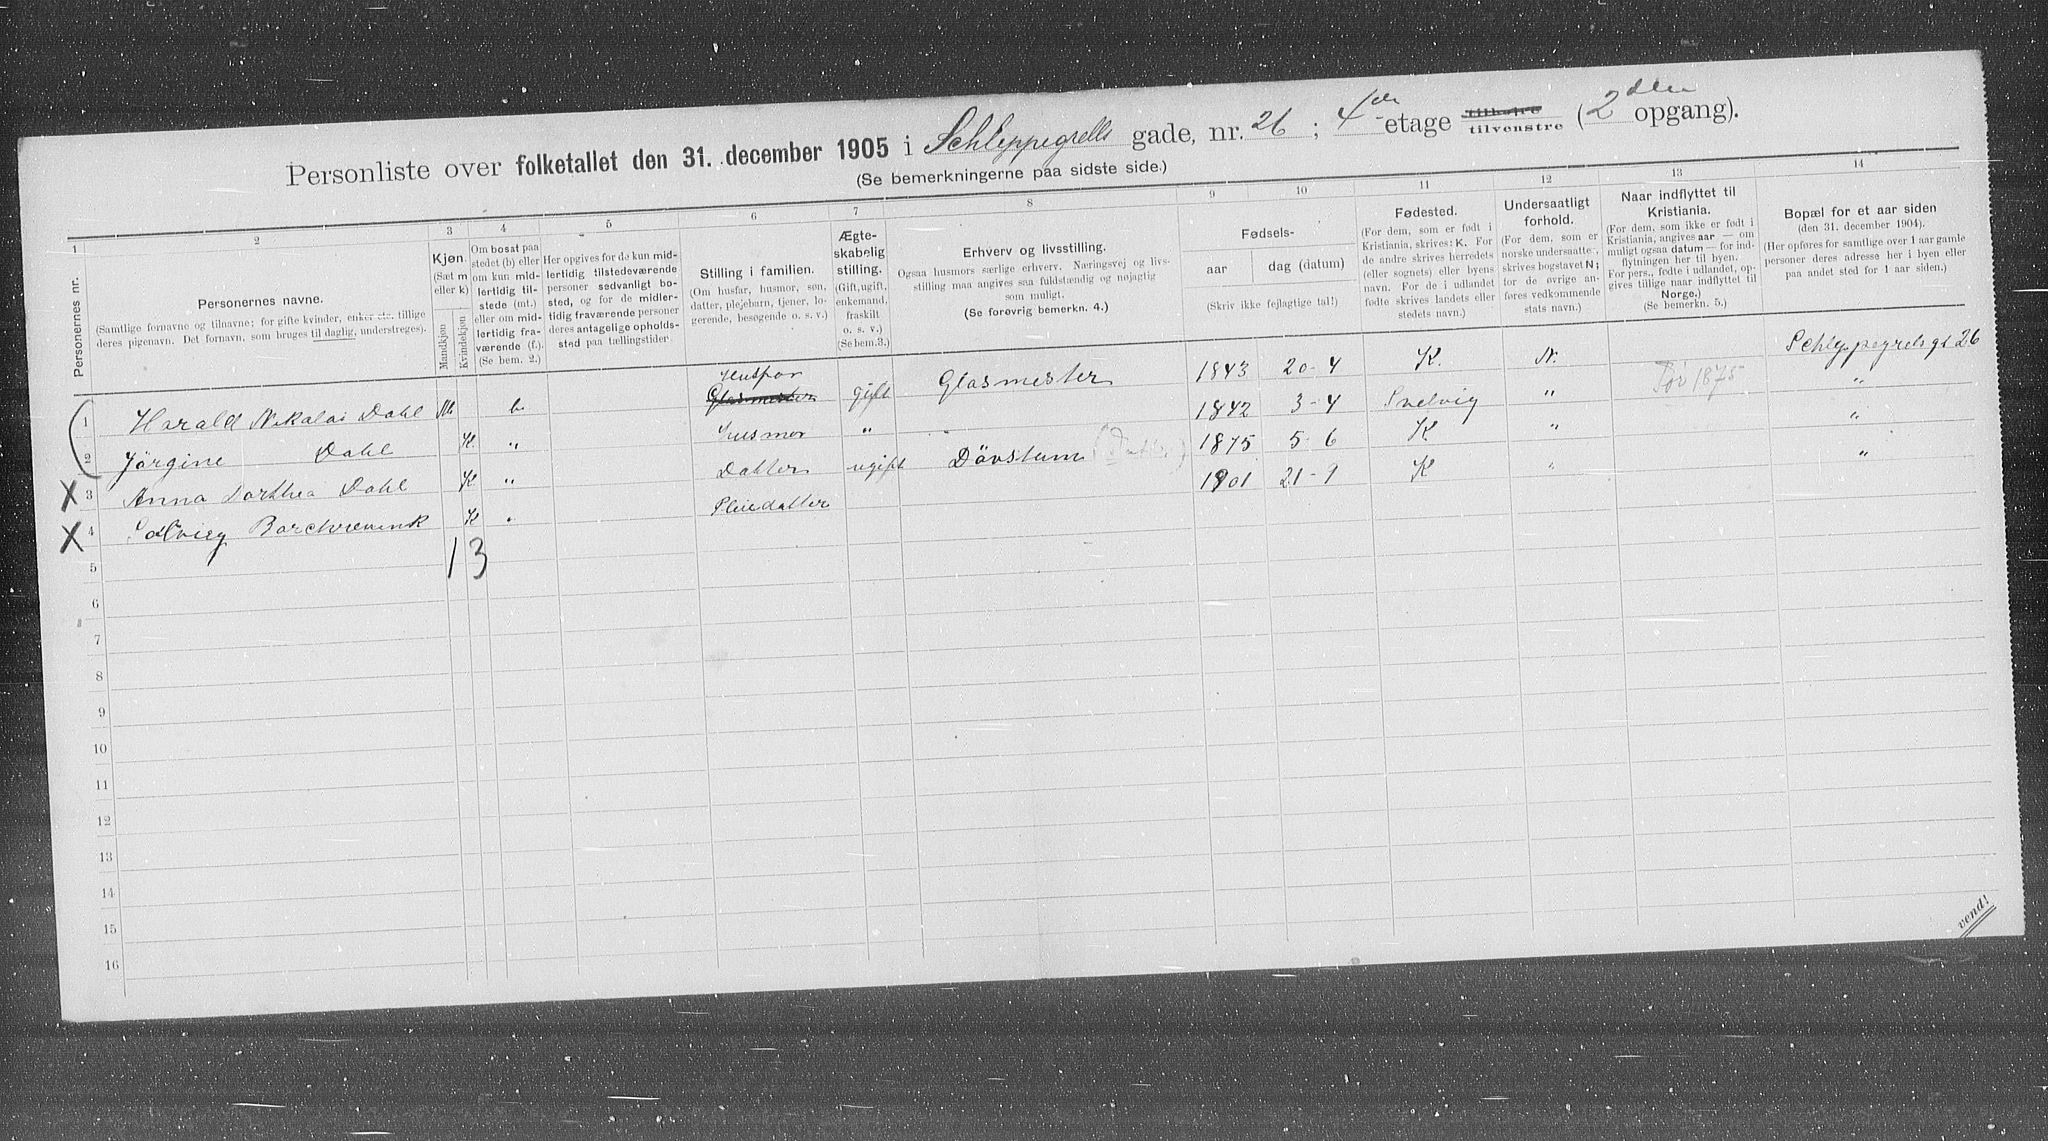 Personliste over folketallet den 31. december 1905 i Schleppegrells gade, nr. 26 ; 4de etage tilhøjre tilvenstre (2den opgang).
(Se bemerkningerne paa sidste side.)
1 2 3 4 5 6 7 8 9 10 11 12 13 14
Personernes nr.
Personernes navne.
(Samtlige fornavne og tilnavne; for gifte kvinder, enker etc. tillige
deres pigenavn. Det fornavn, som bruges til daglig, understreges).
Kjøn.
(Sæt m
eller k)
Mandkjøn
Kvindekjøn
Om bosat paa
stedet (b) eller
om kun mid-
lertidig til-
stede (mt.)
eller om mid-
lertidig fra-
værende (f.)
(Se bem. 2.)
Her opgives for de kun mid-
lertidig tilstedeværende
personer sedvanligt bo-
sted, og for de midler-
tidig fraværende personer
deres antagelige opholds-
sted paa tællingstider
Stilling i familien.
(Om husfar, husmor, søn,
datter, plejebarn, tjener, lo-
gerende, besøgende o. s. v.)
Ægte-
skabelig
stilling.
(Gift, ugift,
enkemand,
fraskilt
o. s. v.)
(Se bem.3.)
Erhverv og livsstilling.
Ogsaa husmors særlige erhverv. Næringsvej og livs-
stilling maa angives saa fuldstændig og nøjagtig
som muligt.
(Se forøvrig bemerkn. 4.)
Fødsels-
aar dag (datum)
(Skriv ikke fejlagtige tal!)
Fødested.
(For dem, som er født i
Kristiania, skrives: K. For
de andre skrives herredets
(eller sognets) eller byens
navn. For de i udlandet
fødte skrives landets eller
stedets navn.)
Undersaatligt
forhold.
(For dem, som er
norske undersaatter,
skrives bogstavet N;
for de øvrige an-
føres vedkommende
stats navn.)
Naar indflyttet til
Kristiania.
(For dem, som ikke er født i
Kristiania, angives aar — om
muligt ogsaa datum — for ind-
flytningen her til byen.
For pers., fødte i udlandet, op-
gives tillige naar indflyttet til
Norge.)
(Se bemerkn. 5.)
Bopæl for et aar siden
(den 31. december 1904).
(Her opføres for samtlige over 1 aar gamle
personer deres adresse her i byen eller
paa andet sted for 1 aar siden.)
1 Harald Nikolai Dahl M b Husfar Glasmester gift Glasmester 1843 20-4 K. N. Schleppegrelsgt 26
2 Jörgine Dahl K " Husmor " 1842 3-4 Svelvig " Før 1875 "
3 Anna Dorthea Dahl K " Datter ugift Døvstum (Datter) 1875 5-6 K " "
4 Solveig K " Pleiedatter 1901 21-9 K " "
1 3
5
6
7
8
9
10
11
12
13
14
15
16
vend!